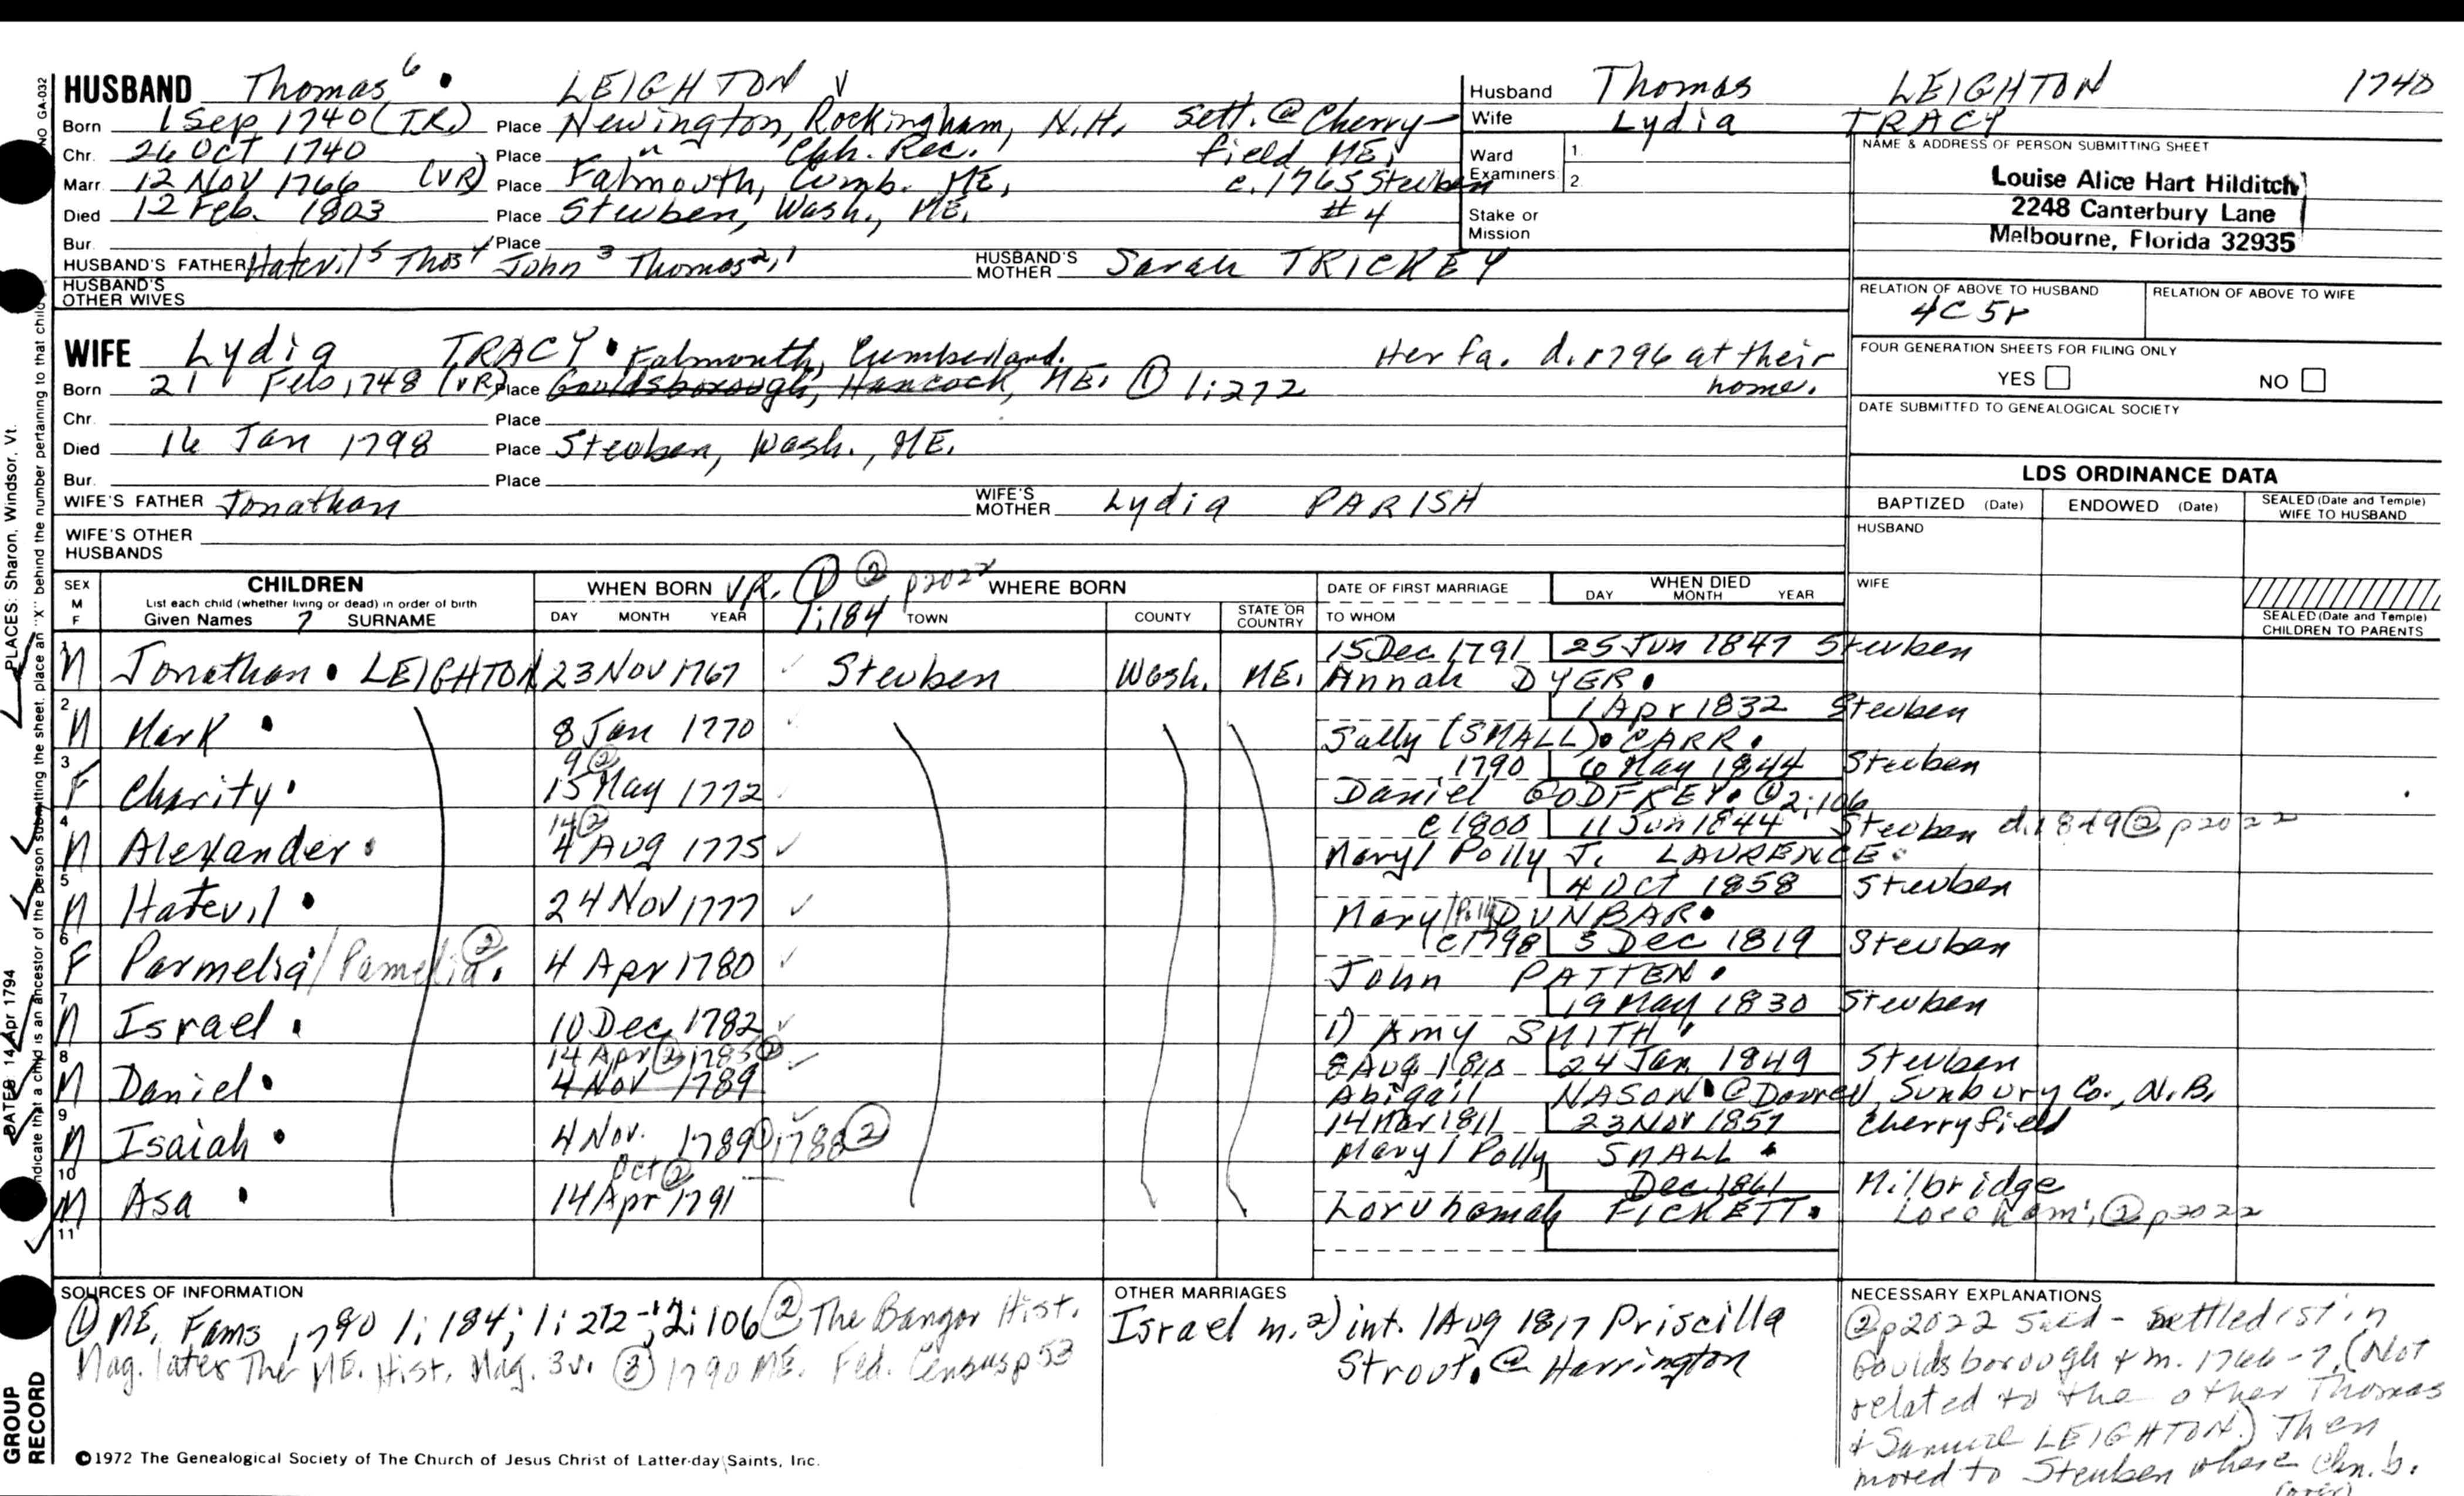 HUSBAND Thomas⁶ • LEIGHTON √
Born 1 Sep 1740 (I.R.) Place Newington, Rockingham, N.H. Sett. @ Cherry-
Chr. 26 OCT 1740 Place " Chh. Rec. field ME,
Marr. 12 NOV 1766 (VR) Place Falmouth, Cumb. ME, c. 1765 Steuben
Died 12 Feb. 1803 Place Steuben, Wash., ME. #4
Bur. Place
HUSBAND'S FATHER Hatevil⁵ Thos⁴ John³ Thomas²,¹ HUSBAND'S MOTHER Sarah TRICKEY
HUSBAND'S OTHER WIVES
Husband Thomas LEIGHTON 1740
Wife Lydia TRACY
Ward 1.
Examiners 2.
Stake or
Mission
NAME & ADDRESS OF PERSON SUBMITTING SHEET
Louise Alice Hart Hilditch
2248 Canterbury Lane
Melbourne, Florida 32935
RELATION OF ABOVE TO HUSBAND RELATION OF ABOVE TO WIFE
4C5r
FOUR GENERATION SHEETS FOR FILING ONLY
YES NO
DATE SUBMITTED TO GENEALOGICAL SOCIETY
WIFE Lydia TRACY • Falmouth, Cumberland. Her fa. d. 1796 at their
Born 21 Feb 1748 (VR) Place Gouldsborough, Hancock, ME. ① 1:272 home.
Chr. Place
Died 16 Jan 1798 Place Steuben, Wash., ME.
Bur. Place
WIFE'S FATHER Jonathan WIFE'S MOTHER Lydia PARISH
WIFE'S OTHER
HUSBANDS
LDS ORDINANCE DATA
BAPTIZED (Date) ENDOWED (Date) SEALED (Date and Temple) WIFE TO HUSBAND
HUSBAND
WIFE
SEALED (Date and Temple)
CHILDREN TO PARENTS
SEX M F CHILDREN WHEN BORN V.R. ① ② p2022 WHERE BORN DATE OF FIRST MARRIAGE WHEN DIED
List each child (whether living or dead) in order of birth
Given Names ? SURNAME DAY MONTH YEAR 1:184 TOWN COUNTY STATE OR COUNTRY TO WHOM DAY MONTH YEAR
1 15 Dec 1791 25 Jun 1847 Steuben
M Jonathan • LEIGHTON 23 Nov 1767 ✓ Steuben Wash. ME. Annah DYER •
2 1 Apr 1832 Steuben
M Mark • 8 Jan 1770 ✓ Sally (SMALL) • CARR •
3 9② 1790 6 May 1844 Steuben
F Charity • 15 May 1772 ✓ Daniel GODFREY • ① 2:106
4 14② c 1800 11 Jun 1844 Steuben d. 1849 ② p2022
M Alexander • 4 Aug 1775 ✓ Mary/Polly J. LAURENCE •
5 4 OCT 1858 Steuben
M Hatevil • 24 Nov 1777 ✓ Mary/Polly DUNBAR •
6 ② c 1798 5 Dec 1819 Steuben
F Parmelia/Pamelia • 4 Apr 1780 ✓ John PATTEN •
7 19 May 1830 Steuben
M Israel • 10 Dec 1782 ✓ 1) Amy SMITH •
8 14 Apr② 1785② ✓ 8 Aug 1818 24 Jan 1849 Steuben
M Daniel • 4 Nov 1789 Abigail NASON • @ Sunbury Co., N.B.
9 14 Mar 1811 23 Nov 1857 Cherryfield
M Isaiah • 4 Nov. 1789① 1788② Mary/Polly SMALL •
10 Oct② Dec 1861 Milbridge
M Asa • 14 Apr 1791 Loruhamah FICKETT • ② p2022
11
SOURCES OF INFORMATION
① ME. Fams 1790 1:184; 1:272-; 2:106 ② The Bangor Hist.
Mag. later The ME. Hist. Mag. 3v. ③ 1790 ME. Fed. Census p53
OTHER MARRIAGES
Israel m. 2) int. 1 Aug 1817 Priscilla
Strout. @ Harrington
NECESSARY EXPLANATIONS
② p2022 said - settled 1st in
Gouldsborough & m. 1766-7. (Not
related to the other Thomas
& Samuel LEIGHTON.) Then
moved to Steuben where chn. b.
(over)
©1972 The Genealogical Society of The Church of Jesus Christ of Latter-day Saints, Inc.
NO GA-032
PLACES: Sharon, Windsor, Vt.
DATES 14 Apr 1794
indicate that a child is an ancestor of the person submitting the sheet, place an "X" behind the number pertaining to that child.
GROUP
RECORD